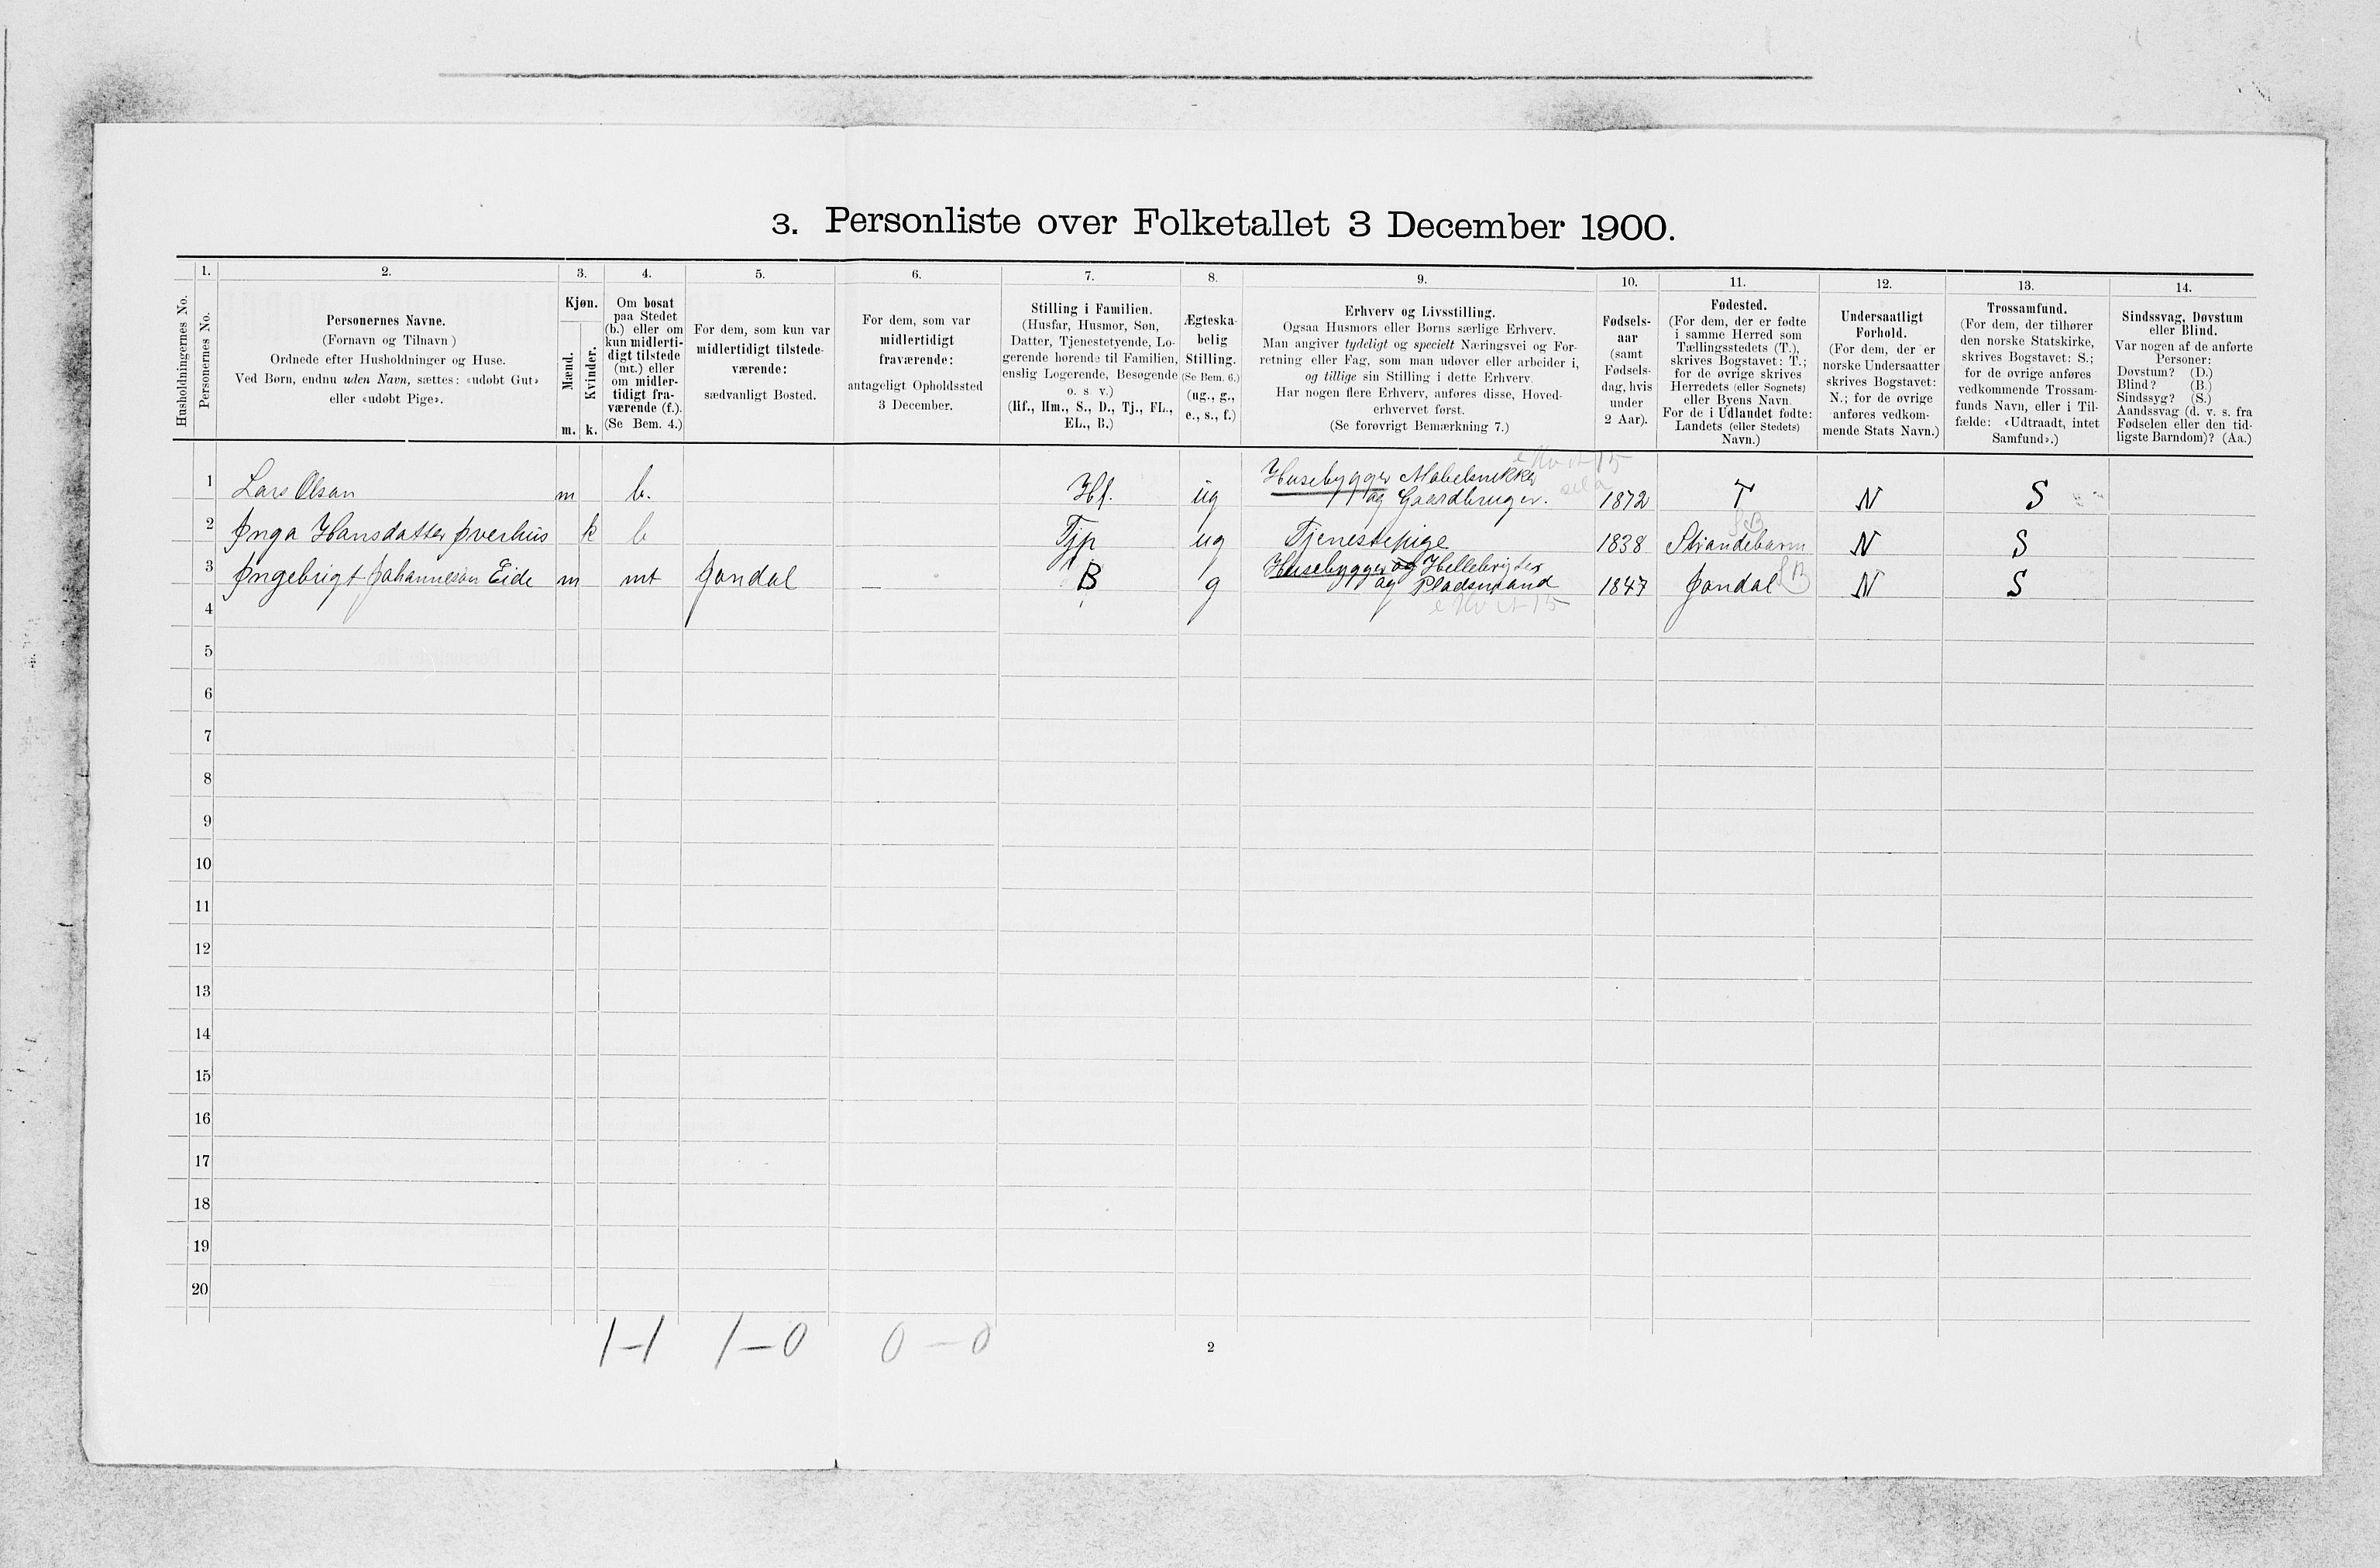 3. Personliste over Folketallet 3 December 1900.
1. 2. 3. 4. 5. 6. 7. 8. 9. 10. 11. 12. 13. 14.
Husholdningernes No.
Personernes No.
Personernes Navne.
(Fornavn og Tilnavn )
Ordnede efter Husholdninger og Huse.
Ved Børn, endnu uden Navn, sættes: «udøbt Gut»
eller «udøbt Pige».
Kjøn.
Mænd.
Kvinder.
m. k.
Om bosat
paa Stedet
(b.) eller om
kun midlerti-
digt tilstede
(mt.) eller
om midler-
tidigt fra-
værende (f.).
(Se Bem. 4.)
For dem, som kun var
midlertidigt tilstede-
værende:
sædvanligt Bosted.
For dem, som var
midlertidigt
fraværende:
antageligt Opholdssted
3 December.
Stilling i Familien.
(Husfar, Husmor, Søn,
Datter, Tjenestetyende, Lo-
gerende hørende til Familien,
enslig Logerende, Besøgende
o. s v.)
(Hf., Hm., S., D., Tj., FL.,
EL., B.)
Ægteska-
belig
Stilling.
(Se Bem. 6.)
(ug., g.,
e., s., f.)
Erhverv og Livsstilling.
Ogsaa Husmors eller Børns særlige Erhverv.
Man angiver tydeligt og specielt Næringsvei og For-
retning eller Fag, som man udøver eller arbeider i,
og tillige sin Stilling i dette Erhverv.
Har nogen flere Erhverv, anføres disse, Hoved-
erhvervet først.
(Se forøvrigt Bemærkning 7.)
Fødsels-
aar
(samt
Fødsels-
dag, hvis
under
2 Aar).
Fødested.
(For dem, der er fødte
i samme Herred som
Tællingsstedets (T.),
skrives Bogstavet: T.;
for de øvrige skrives
Herredets (eller Sognets)
eller Byens Navn.
For de i Udlandet fødte:
Landets (eller Stedets)
Navn.)
Undersaatligt
Forhold.
(For dem, der er
norske Undersaatter
skrives Bogstavet:
N.; for de øvrige
anføres vedkom-
mende Stats Navn.)
Trossamfund.
(For dem, der tilhører
den norske Statskirke,
skrives Bogstavet: S.;
for de øvrige anføres
vedkommende Trossam-
funds Navn, eller i Til-
fælde: «Udtraadt, intet
Samfund».)
Sindssvag, Døvstum
eller Blind.
Var nogen af de anførte
Personer:
Døvstum? (D.)
Blind? (B.)
Sindssyg? (S.)
Aandssvag (d. v. s. fra
Fødselen eller den tid-
ligste Barndom)? (Aa.)
1 Lars Olsan m b. Hf. ug Husebygger Møbelsnikker
og Gaardbruger. 1872 T N S
2 Inga Hansdatter Þverhus k b Tjp ug Tjenestepige 1838 Strandebarm N S
3 Ingebrigt Johanneson Eide m mt Jondal — B g Husebygger og Hellebrigter
og Pladsmand 1847 Jondal N S
4
5
6
7
8
9
10
11
12
13
14
15
16
17
18
19
20
1-1 1-0 0-0
2